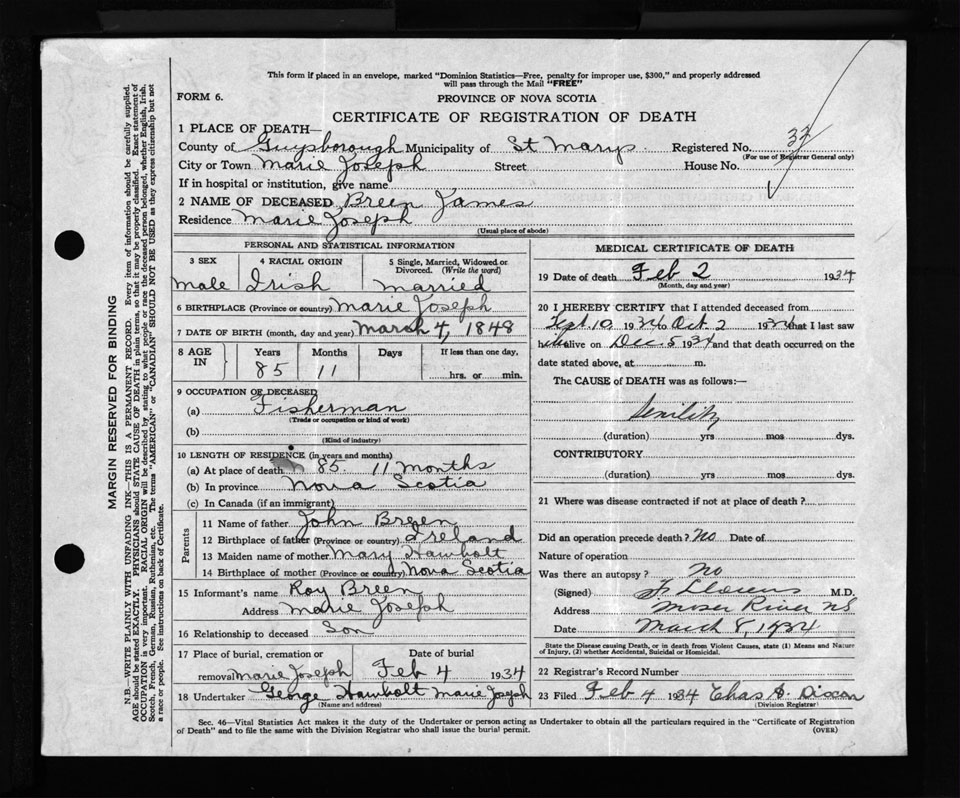 This form if placed in an envelope, marked "Dominion Statistics—Free, penalty for improper use, $300," and properly addressed
will pass through the Mail "FREE"
FORM 6.
PROVINCE OF NOVA SCOTIA
CERTIFICATE OF REGISTRATION OF DEATH
1 PLACE OF DEATH—
County of Guysborough Municipality of St Marys Registered No.
(For use of Registrar General only)
City or Town Marie Joseph Street House No.
If in hospital or institution, give name
2 NAME OF DECEASED Breen James
Residence Marie Joseph
(Usual place of abode)
PERSONAL AND STATISTICAL INFORMATION
3 SEX 4 RACIAL ORIGIN 5 Single, Married, Widowed or
Divorced. (Write the word)
Male Irish Married
6 BIRTHPLACE (Province or country) Marie Joseph
7 DATE OF BIRTH (month, day and year) March 4, 1848
8 AGE IN Years Months Days If less than one day.
85 11 hrs. or min.
9 OCCUPATION OF DECEASED
(a) Fisherman
(Trade or occupation or kind of work)
(b)
(Kind of industry)
10 LENGTH OF RESIDENCE (in years and months)
(a) At place of death 85. 11 months
(b) In province Nova Scotia
(c) In Canada (if an immigrant)
Parents
11 Name of father John Breen
12 Birthplace of father (Province or country) Ireland
13 Maiden name of mother Mary Hawbolt
14 Birthplace of mother (Province or country) Nova Scotia
15 Informant's name Roy Breen
Address Marie Joseph
16 Relationship to deceased Son
17 Place of burial, cremation or Date of burial
removal Marie Joseph Feb 4 1934
18 Undertaker George Hawbolt Marie Joseph
(Name and address)
MEDICAL CERTIFICATE OF DEATH
19 Date of death Feb 2 1934
(Month, day and year)
20 I HEREBY CERTIFY that I attended deceased from
10 1934 to Oct. 2 1934 that I last saw
alive on Dec. 5 1934 and that death occurred on the
date stated above, at m.
The CAUSE of DEATH was as follows:—
Senility
(duration) yrs mos dys.
CONTRIBUTORY
(duration) yrs mos dys.
21 Where was disease contracted if not at place of death?
Did an operation precede death? No Date of
Nature of operation
Was there an autopsy? No
(Signed) M.D.
Address Moser River NS
Date March 8, 1934
State the Disease causing Death, or in death from Violent Causes, state (1) Means and Nature
of Injury, (2) whether Accidental, Suicidal or Homicidal.
22 Registrar's Record Number
23 Filed Feb 4 1934 Chas S. Dixon
(Division Registrar)
Sec. 46—Vital Statistics Act makes it the duty of the Undertaker or person acting as Undertaker to obtain all the particulars required in the "Certificate of Registration
of Death" and to file the same with the Division Registrar who shall issue the burial permit.
(OVER)
MARGIN RESERVED FOR BINDING
N.B.—WRITE PLAINLY WITH UNFADING INK—THIS IS A PERMANENT RECORD. Every item of information should be carefully supplied.
AGE should be stated EXACTLY. PHYSICIANS should STATE CAUSE OF DEATH in plain terms, so that it may be properly classified. Exact statement of
OCCUPATION is very important. RACIAL ORIGIN will be described by stating to what people or race the deceased person belonged, whether English, Irish,
Scotch, French, German, Russian, Ruthenian, etc. The terms "AMERICAN" or "CANADIAN" SHOULD NOT BE USED as they express citizenship but not
a race or people. See instructions on back of Certificate.